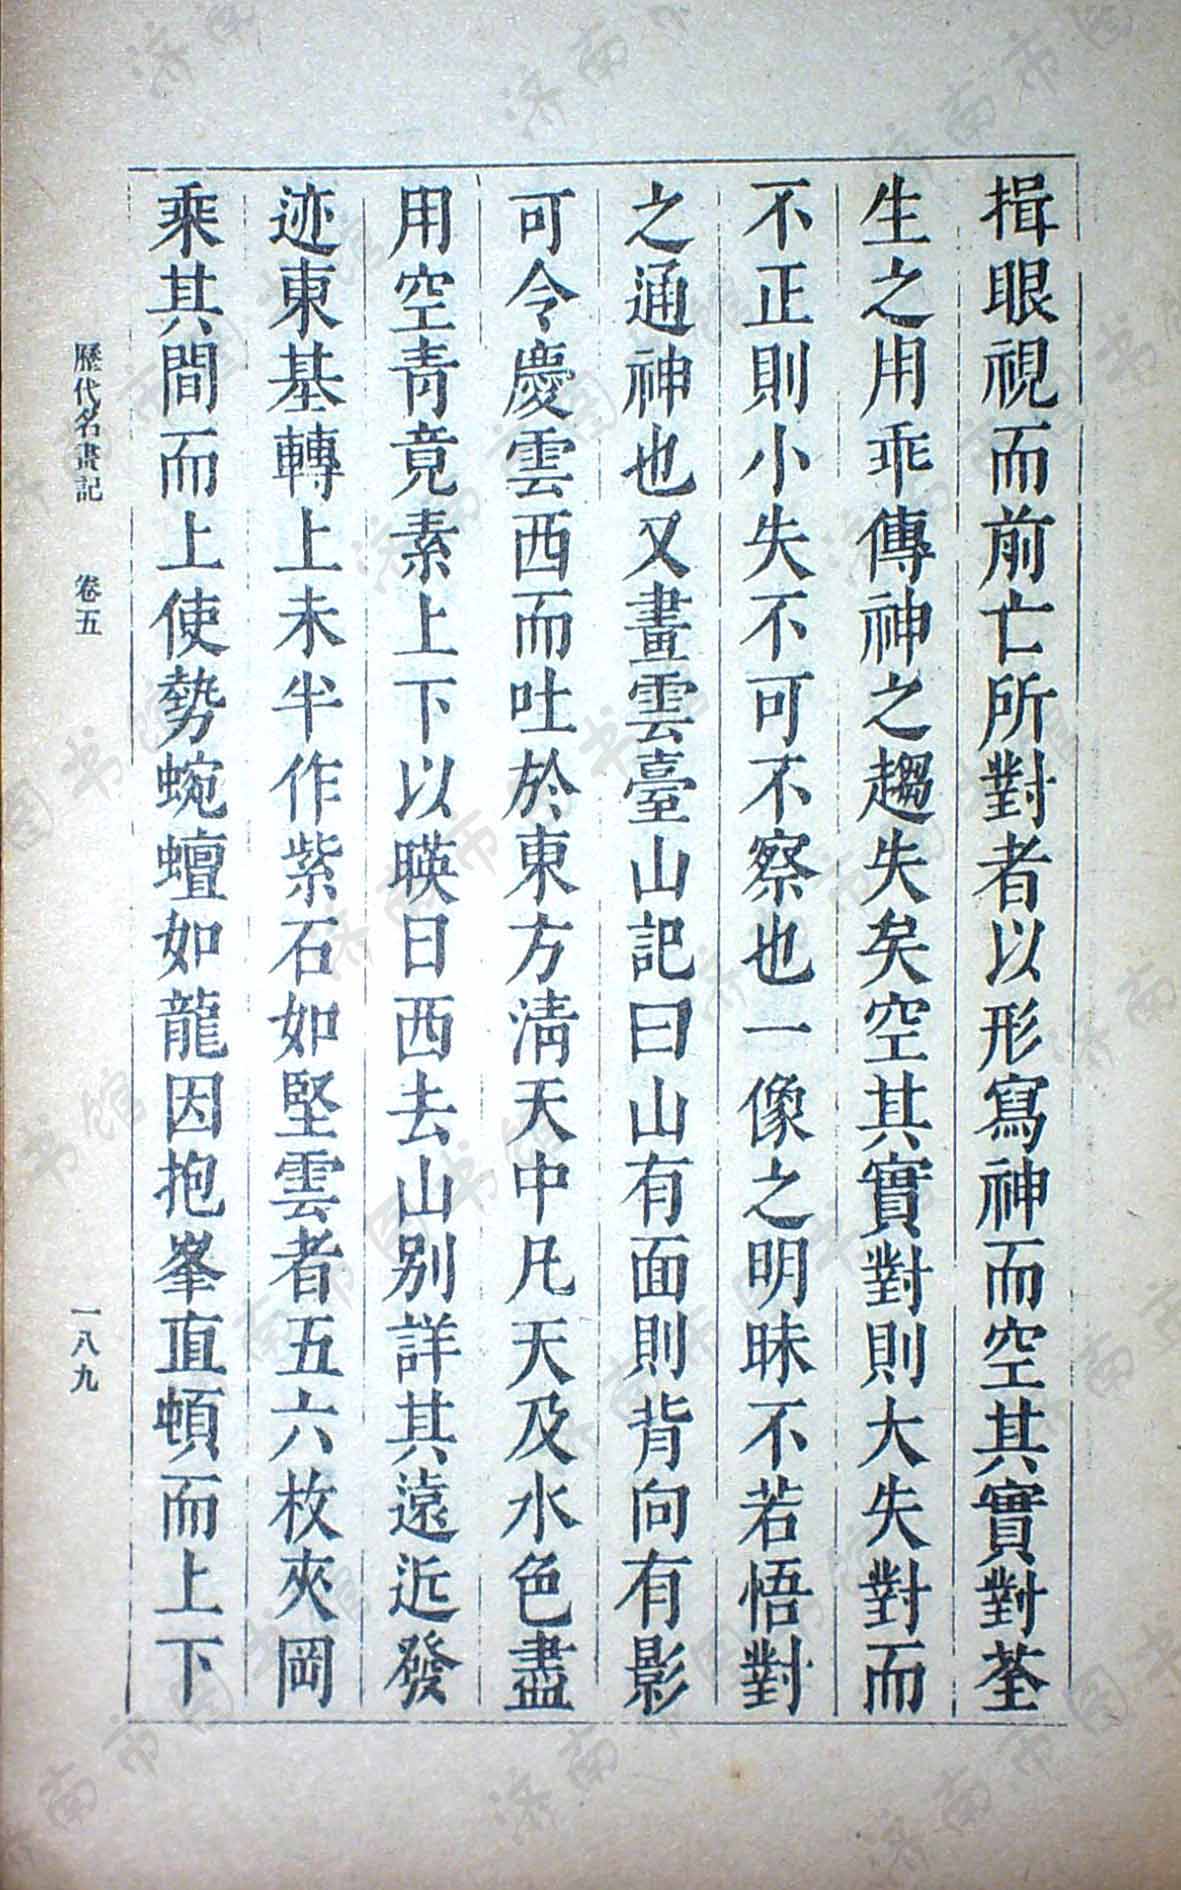 揖眼視而前亡所對者以形寫神而空其實對荃
生之用乖傳神之趨失矣空其實對則大失對而
不正則小失不可不察也一像之明昧不若悟對
之通神也又畫雲臺山記曰山有面則背向有影
可令慶雲西而吐於東方淸天中凡天及水色盡
用空青竟素上下以暎日西去山别詳其遠近發
迹東基轉上未半作紫石如堅雲者五六枚夾岡
乘其間而上使勢蜿蟺如龍因抱峯直頓而上下
歷代名畫記 卷五 一八九
济南市图书馆